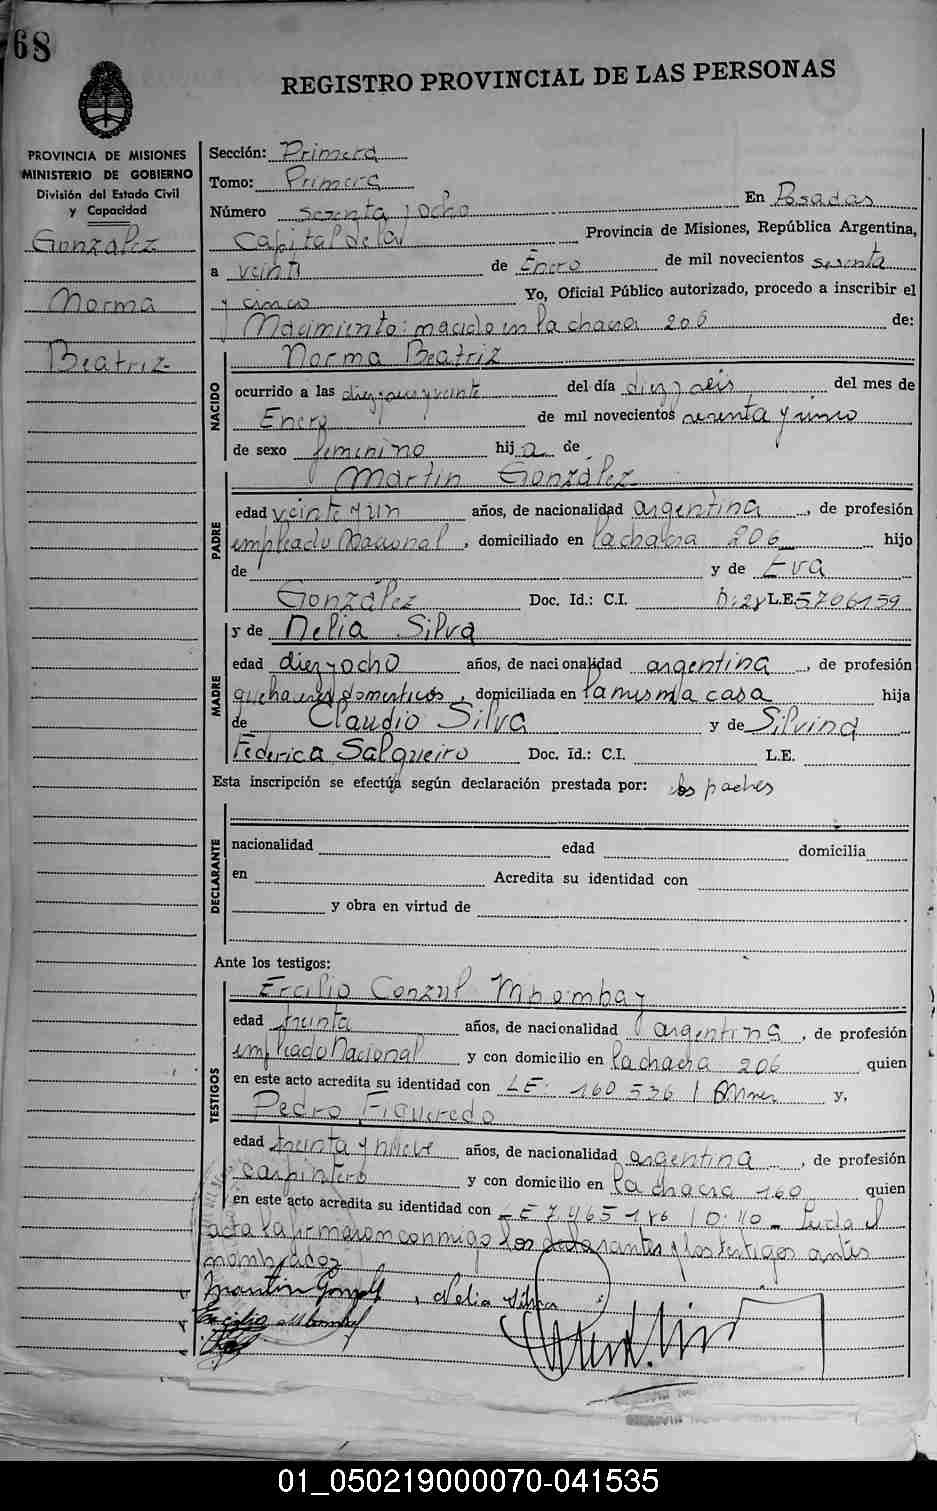 68
REGISTRO PROVINCIAL DE LAS PERSONAS
PROVINCIA DE MISIONES
MINISTERIO DE GOBIERNO
División del Estado Civil
y Capacidad
González
Norma
Beatriz
Sección: Primera
Tomo: Primera
Número sesenta y ocho En Posadas
Capital de la Provincia de Misiones, República Argentina,
a veinti de Enero de mil novecientos sesenta
y cinco Yo, Oficial Público autorizado, procedo a inscribir el
Nacimiento: nacido en la chacra 206 de:
Norma Beatriz
NACIDO
ocurrido a las diez y veinte del día diez y seis del mes de
Enero de mil novecientos sesenta y cinco
de sexo femenino hija de
Martin González
PADRE
edad veinte y un años, de nacionalidad argentina, de profesión
empleado Nacional, domiciliado en la chacra 206 hijo
de y de Eva
González Doc. Id.: C.I. L.E. 5706159
MADRE
y de Nelia Silva
edad diez y ocho años, de nacionalidad argentina, de profesión
quehaceres domesticos, domiciliada en la misma casa hija
de Claudio Silva y de Silvina
Federica Salqueiro Doc. Id.: C.I. L.E.
Esta inscripción se efectúa según declaración prestada por: los padres
DECLARANTE
nacionalidad edad domicilia
en Acredita su identidad con
y obra en virtud de
Ante los testigos:
TESTIGOS
Ercilio Mbombay
edad treinta años, de nacionalidad argentina, de profesión
empleado Nacional y con domicilio en la chacra 206 quien
en este acto acredita su identidad con LE: 160 536 y,
Pedro Figueredo
edad treinta y nueve años, de nacionalidad argentina, de profesión
carpintero y con domicilio en la chacra 160 quien
en este acto acredita su identidad con LE 7465186 Leida el
acta la firmaron conmigo los declarantes y los testigos antes
nombrados
Martin Gonzalez, Nelia Silva
01_050219000070-041535